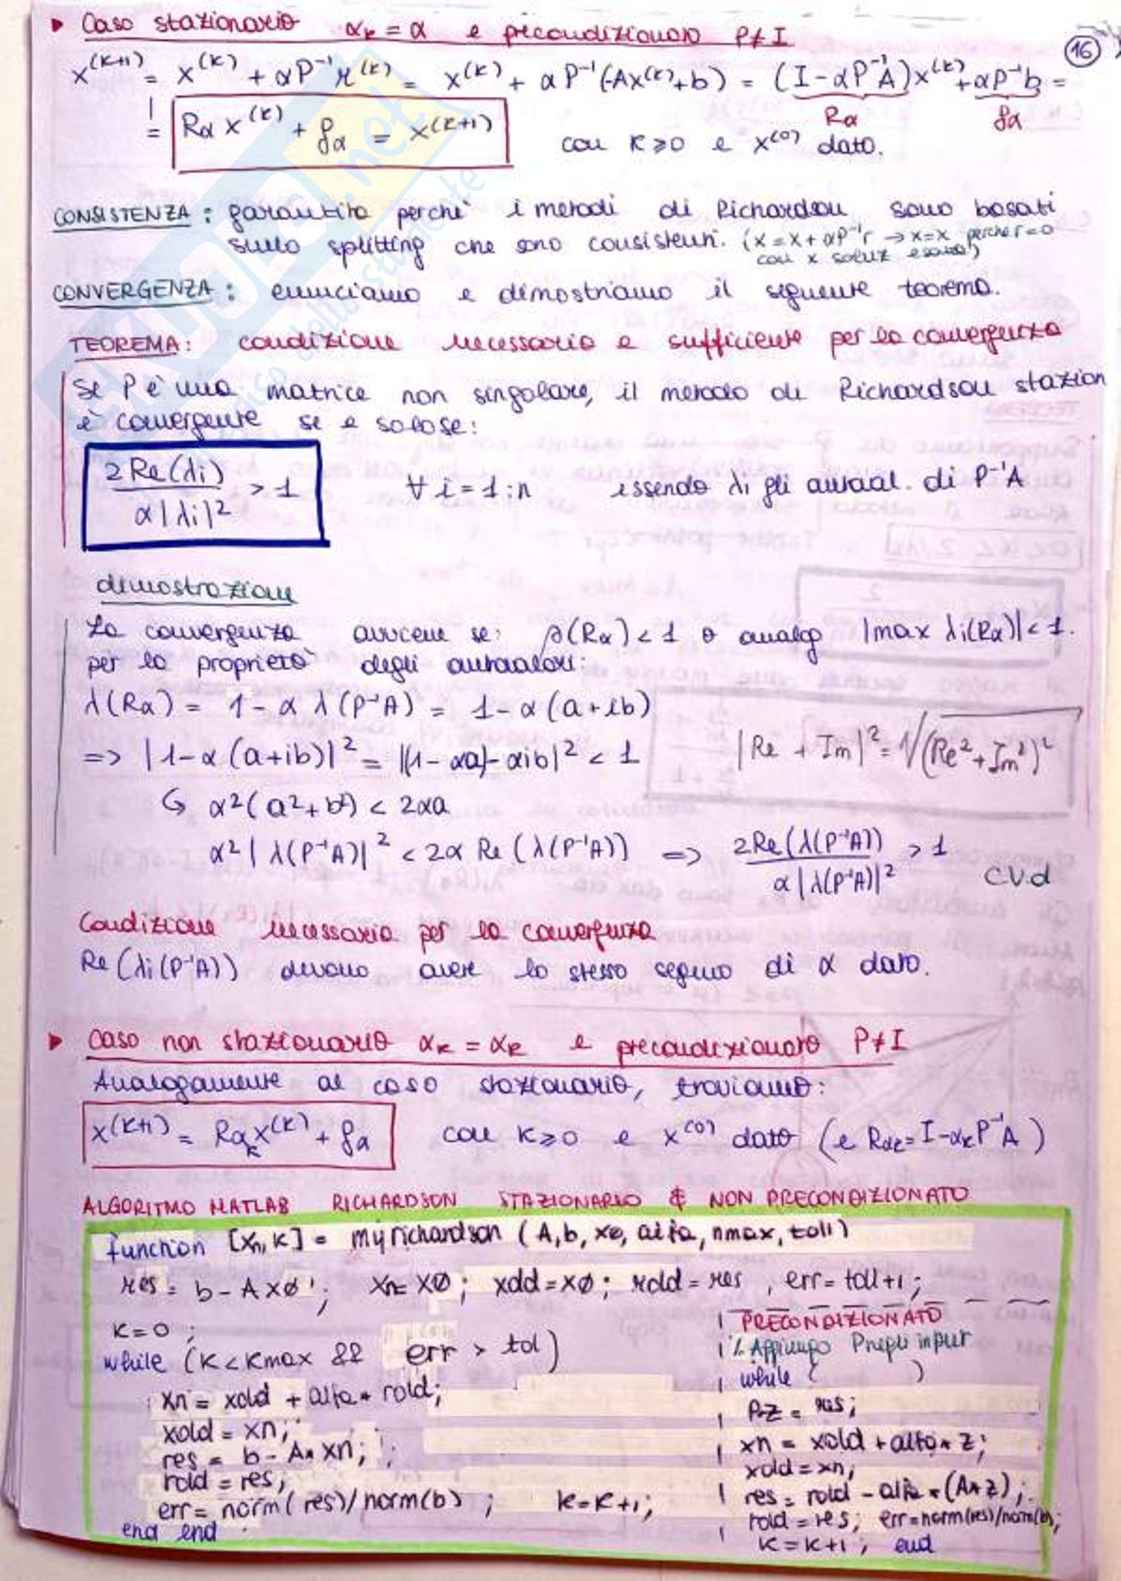 ▸ Caso stazionario αk = α e precondizionato P≠I
16
x^(k+1) = x^(k) + αP⁻¹r^(k) = x^(k) + αP⁻¹(-Ax^(k)+b) = (I-αP⁻¹A)x^(k) + αP⁻¹b =
Rα gα
= Rα x^(k) + gα = x^(k+1) con k≥0 e x^(0) dato.
CONSISTENZA: garantita perchè i metodi di Richardson sono basati
sullo splitting che sono consistenti. (x = x + αP⁻¹r → x=x perche r=0
con x soluz esatta!)
CONVERGENZA: enunciamo e dimostriamo il seguente teorema.
TEOREMA: condizione necessaria e sufficiente per la convergenza
Se P è una matrice non singolare, il metodo di Richardson stazion
è convergente se e solo se:
2Re(λi) / α|λi|² > 1 ∀ i = 1:n essendo λi gli autoval. di P⁻¹A
dimostrazione
La convergenza avviene se: ρ(Rα) < 1 o analog |max λi(Rα)| < 1.
per la proprietà degli autovalori:
λ(Rα) = 1 - α λ(P⁻¹A) = 1 - α(a+ib)
=> |1-α(a+ib)|² = |(1-αa)-αib|² < 1 |Re + Im|² = √(Re²+Im²)²
↳ α²(a²+b²) < 2αa
α²|λ(P⁻¹A)|² < 2α Re(λ(P⁻¹A)) => 2Re(λ(P⁻¹A)) / α|λ(P⁻¹A)|² > 1 C.V.d
Condizione necessaria per la convergenza
Re(λi(P⁻¹A)) devono avere lo stesso segno di α dato.
▸ Caso non stazionario αk = αk e precondizionato P≠I
Analogamente al caso stazionario, troviamo:
x^(k+1) = Rαk x^(k) + gα con k≥0 e x^(0) dato (e Rαk = I-αkP⁻¹A)
ALGORITMO MATLAB RICHARDSON STAZIONARIO & NON PRECONDIZIONATO
function [xn,k] = myrichardson (A, b, x0, alfa, nmax, toll)
res = b - A x0'; xn= x0; xold = x0; rold = res , err = toll+1;
k=0 ;
while (k<kmax && err > tol)
xn = xold + alfa * rold;
xold = xn;
res = b - A* xn;
rold = res;
err = norm(res)/norm(b) ; k=k+1;
end end
PRECONDIZIONATO
% Aggiungo P negli input
while ( )
P*z = res;
xn = xold + alfa* z;
xold = xn;
res = rold - alfa * (A*z);
rold = res; err=norm(res)/norm(b);
k = k+1 ; end